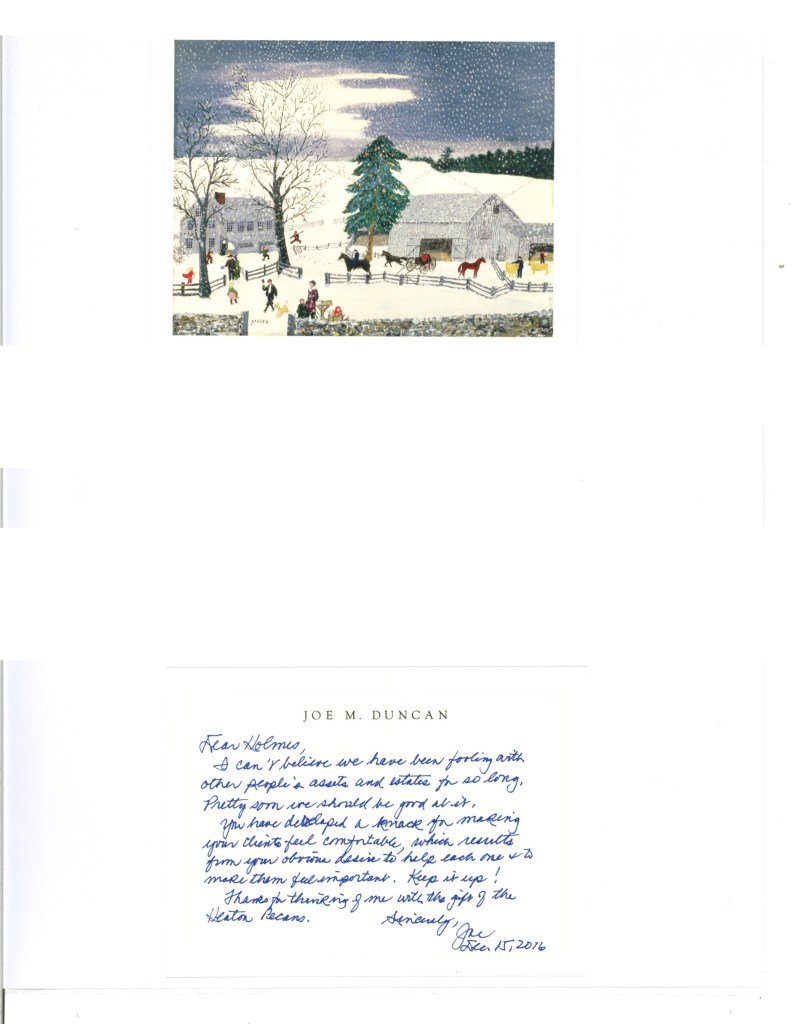 MOSES.
JOE M. DUNCAN
Dear Holmes,
I can't believe we have been fooling with
other people's assets and estates for so long.
Pretty soon we should be good at it.
You have developed a knack for making
your clients feel comfortable, which results
from your obvious desire to help each one & to
make them feel important. Keep it up!
Thanks for thinking of me with the gift of the
Heaton Pecans. Sincerely,
Joe
Dec. 15, 2016